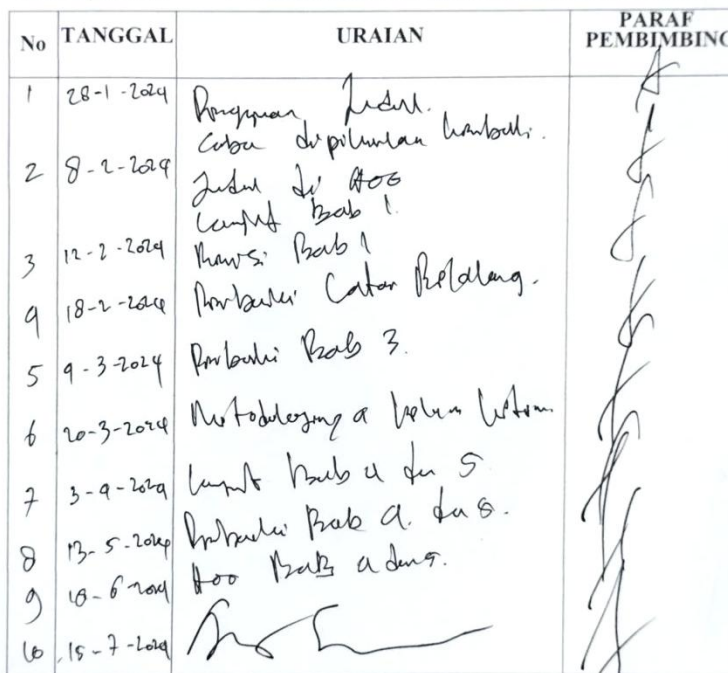 No TANGGAL URAIAN PARAF PEMBIMBING
1 28-1-2024 Pengajuan Judul.
Coba dipikirkan kembali.
2 8-2-2024 Judul di ACC
Lanjut Bab 1.
3 12-2-2024 Revisi Bab 1
4 18-2-2024 Perbaiki Latar Belakang.
5 9-3-2024 Perbaiki Bab 3.
6 20-3-2024 Metodologinya belum
7 3-4-2024 Lanjut Bab 4 dan 5
8 13-5-2024 Perbaiki Bab 4 dan 5.
9 10-6-2024 ACC Bab 4 dan 5.
10 15-7-2024